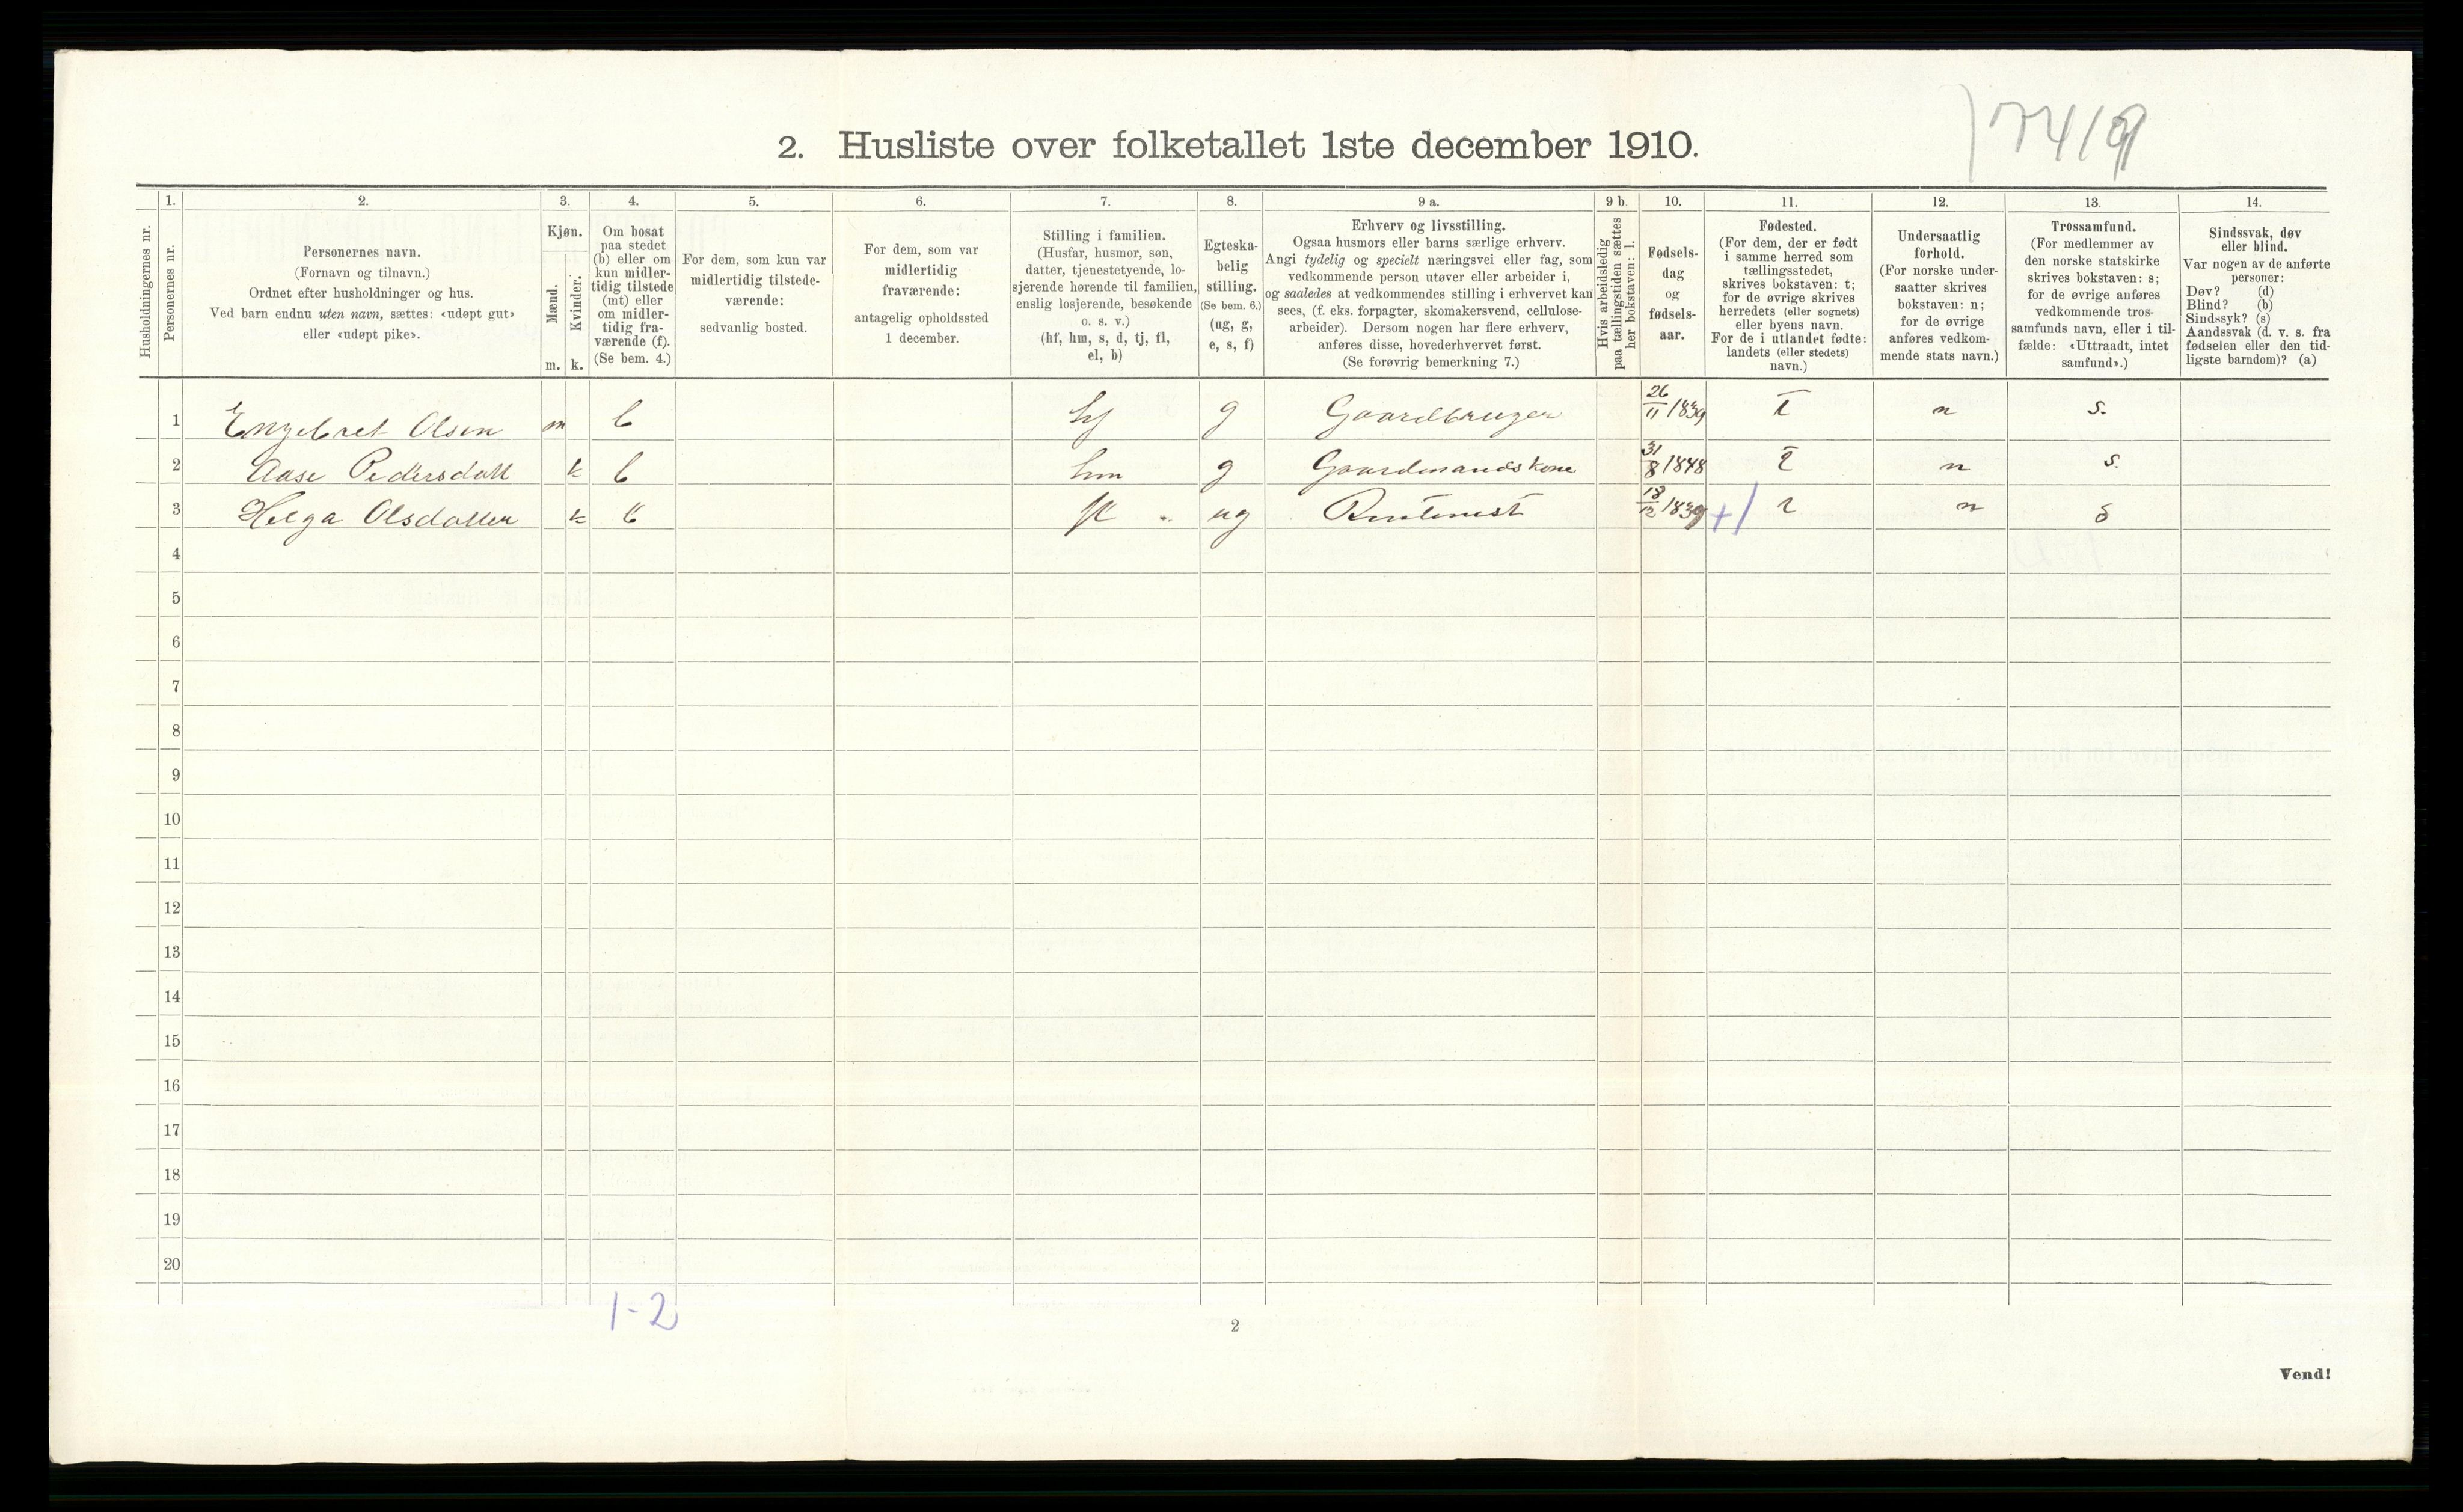 2. Husliste over folketallet 1ste december 1910.
1. 2. 3. 4. 5. 6. 7. 8. 9 a. 9 b. 10. 11. 12. 13. 14.
Husholdningernes nr.
Personernes nr.
Personernes navn.
(Fornavn og tilnavn.)
Ordnet efter husholdninger og hus.
Ved barn endnu uten navn, sættes: «udøpt gut»
eller «udøpt pike».
Kjøn.
Mænd.
Kvinder.
m. k.
Om bosat
paa stedet
(b) eller om
kun midler-
tidig tilstede
(mt) eller
om midler-
tidig fra-
værende (f).
(Se bem. 4.)
For dem, som kun var
midlertidig tilstede-
værende:
sedvanlig bosted.
For dem, som var
midlertidig
fraværende:
antagelig opholdssted
1 december.
Stilling i familien.
(Husfar, husmor, søn,
datter, tjenestetyende, lo-
sjerende hørende til familien,
enslig losjerende, besøkende
o. s. v.)
(hf, hm, s, d, tj, fl,
el, b)
Egteska-
belig
stilling.
(Se bem. 6.)
(ug, g,
e, s, f)
Erhverv og livsstilling.
Ogsaa husmors eller barns særlige erhverv.
Angi tydelig og specielt næringsvei eller fag, som
vedkommende person utøver eller arbeider i,
og saaledes at vedkommendes stilling i erhvervet kan
sees, (f. eks. forpagter, skomakersvend, cellulose-
arbeider). Dersom nogen har flere erhverv,
anføres disse, hovederhvervet først.
(Se forøvrig bemerkning 7.)
Hvis arbeidsledig
paa tællingstiden sættes
her bokstaven: l.
Fødsels-
dag
og
fødsels-
aar.
Fødested.
(For dem, der er født
i samme herred som
tællingsstedet,
skrives bokstaven: t;
for de øvrige skrives
herredets (eller sognets)
eller byens navn.
For de i utlandet fødte:
landets (eller stedets)
navn.)
Undersaatlig
forhold.
(For norske under-
saatter skrives
bokstaven: n;
for de øvrige
anføres vedkom-
mende stats navn.)
Trossamfund.
(For medlemmer av
den norske statskirke
skrives bokstaven: s;
for de øvrige anføres
vedkommende tros-
samfunds navn, eller i til-
fælde: «Uttraadt, intet
samfund».)
Sindssvak, døv
eller blind.
Var nogen av de anførte
personer:
Døv? (d)
Blind? (b)
Sindssyk? (s)
Aandssvak (d. v. s. fra
fødselen eller den tid-
ligste barndom)? (a)
1 Engebret Olsen m b hf g Gaardbruger 26/11 1839 t n s.
2 Aase Pedersdatt k b hm g Gaardmandskone 31/8 1848 t n s.
3 Helga Olsdatter k b fl ug Rentenest 18/12 1839 +1 t n s
4
5
6
7
8
9
10
11
12
13
14
15
16
17
18
19
20
1-2
2
Vend!